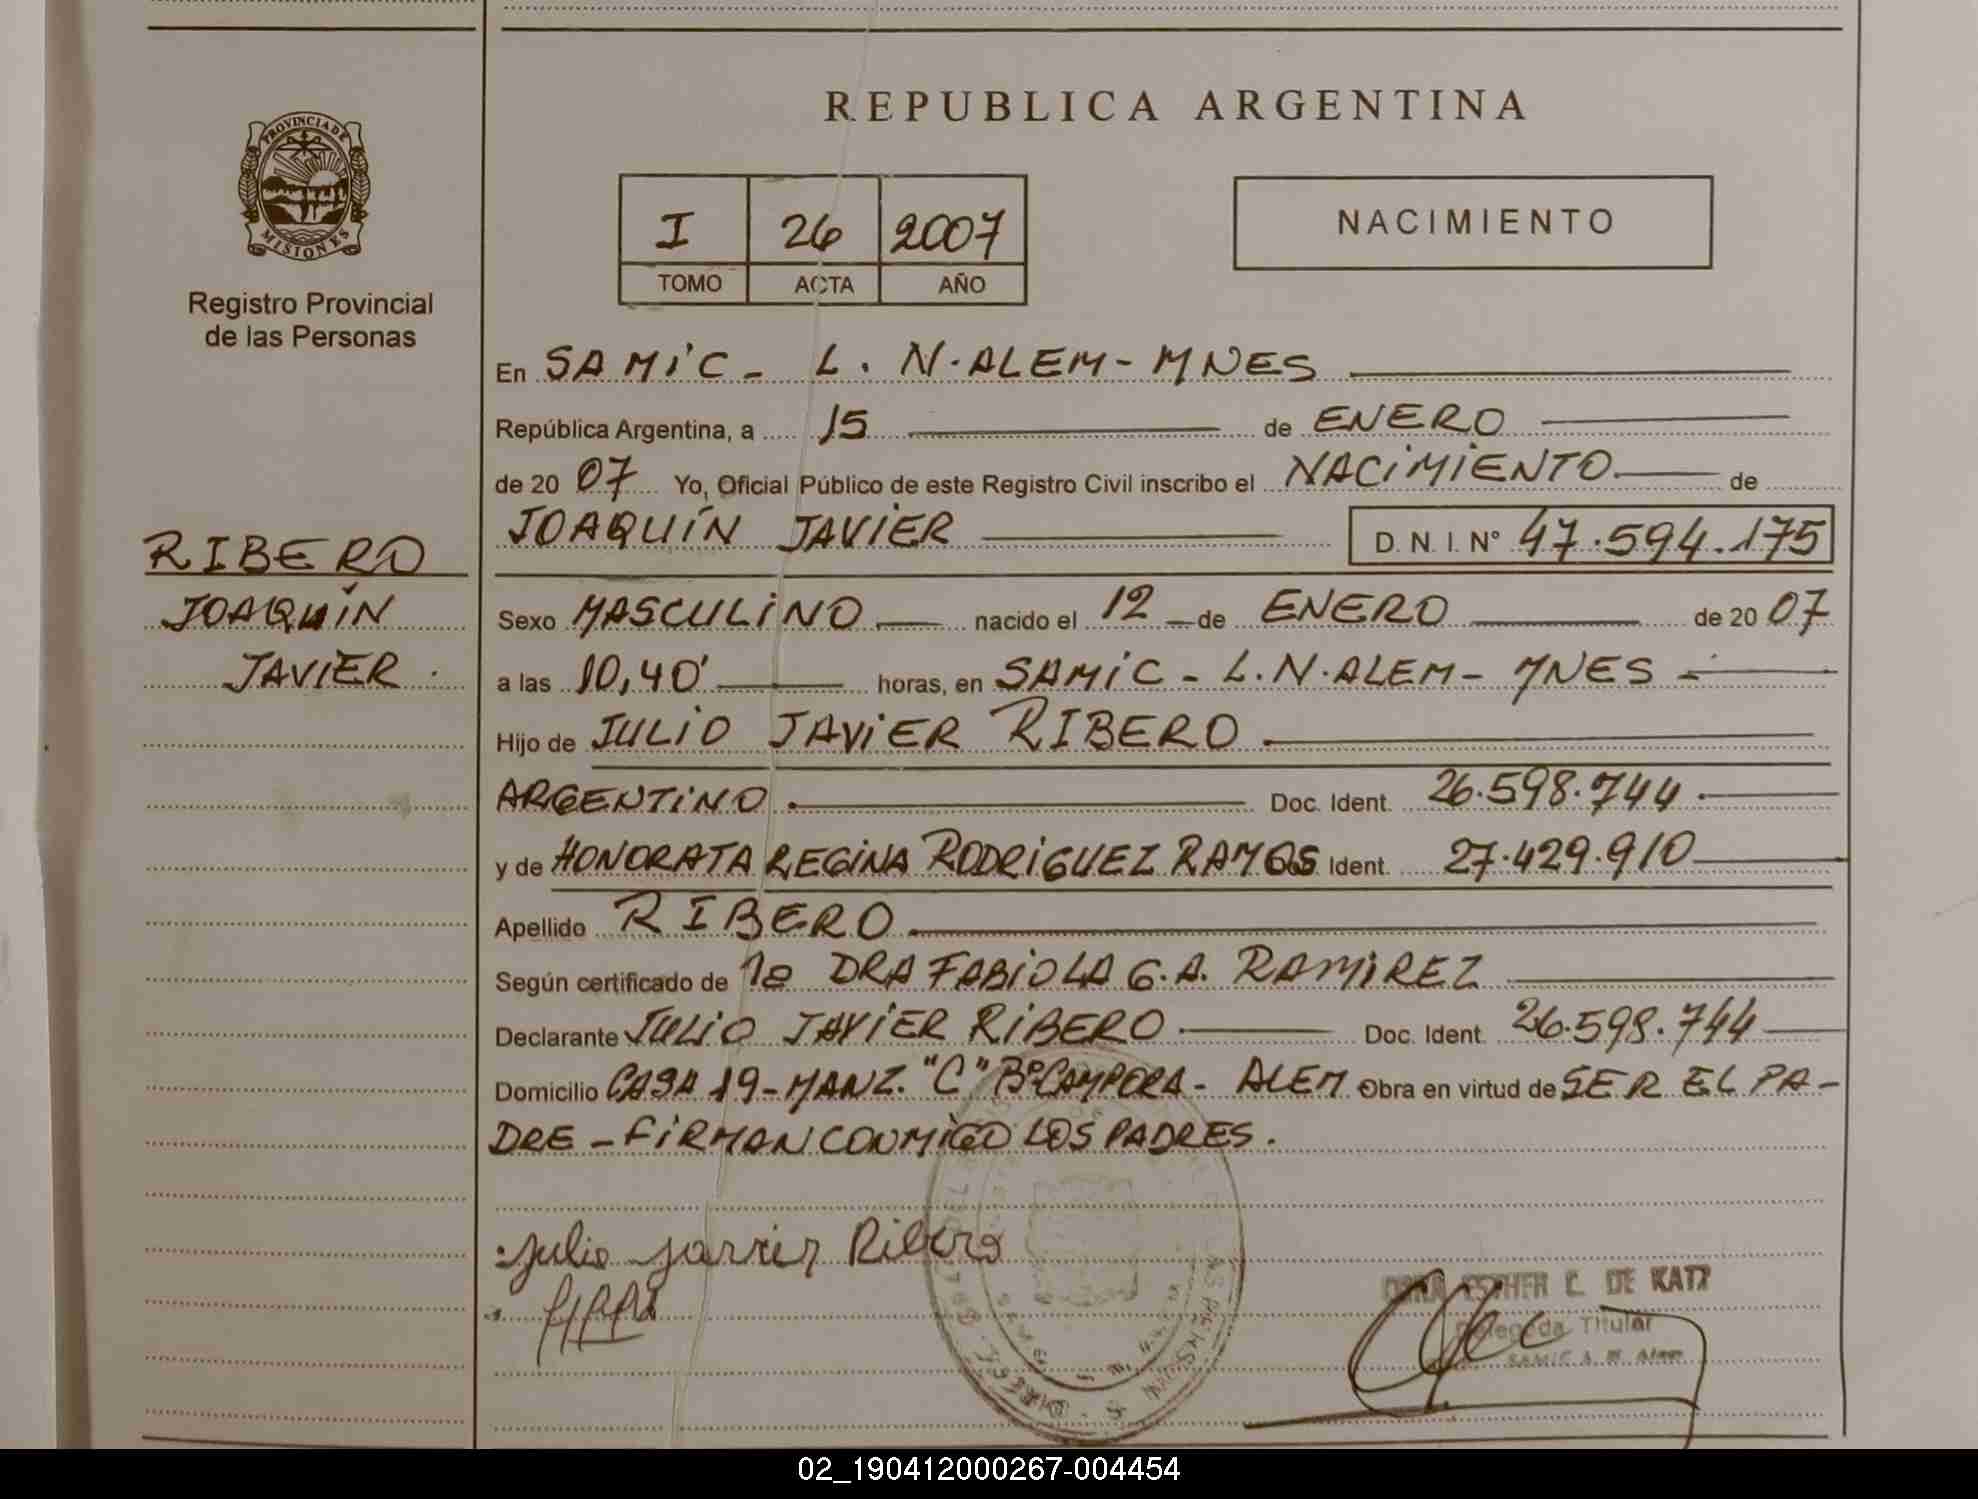 REPUBLICA ARGENTINA
PROVINCIA DE
MISIONES
Registro Provincial
de las Personas
I 26 2007
TOMO ACTA AÑO
NACIMIENTO
En SAMIC - L. N. ALEM - MNES
República Argentina, a 15 de ENERO
de 20 07 Yo, Oficial Público de este Registro Civil inscribo el NACIMIENTO de
JOAQUÍN JAVIER D. N. I. Nº 47.594.175
RIBERO
JOAQUÍN
JAVIER.
Sexo MASCULINO nacido el 12 de ENERO de 20 07
a las 10,40' horas, en SAMIC - L. N. ALEM - MNES -
Hijo de JULIO JAVIER RIBERO
ARGENTINO. Doc. Ident. 26.598.744
y de HONORATA REGINA RODRIGUEZ RAMOS Ident. 27.429.910
Apellido RIBERO
Según certificado de 1ª DRA FABIOLA G. A. RAMIREZ
Declarante JULIO JAVIER RIBERO Doc. Ident. 26.598.744
Domicilio CASA 19 - MANZ. "C" Bº CAMPORA - ALEM Obra en virtud de SER EL PA-
DRE - FIRMAN CONMIGO LOS PADRES.
Julio Javier Ribero
ESTHER C. DE KATZ
Delegada Titular
SAMIC L. N. Alem
02_190412000267-004454